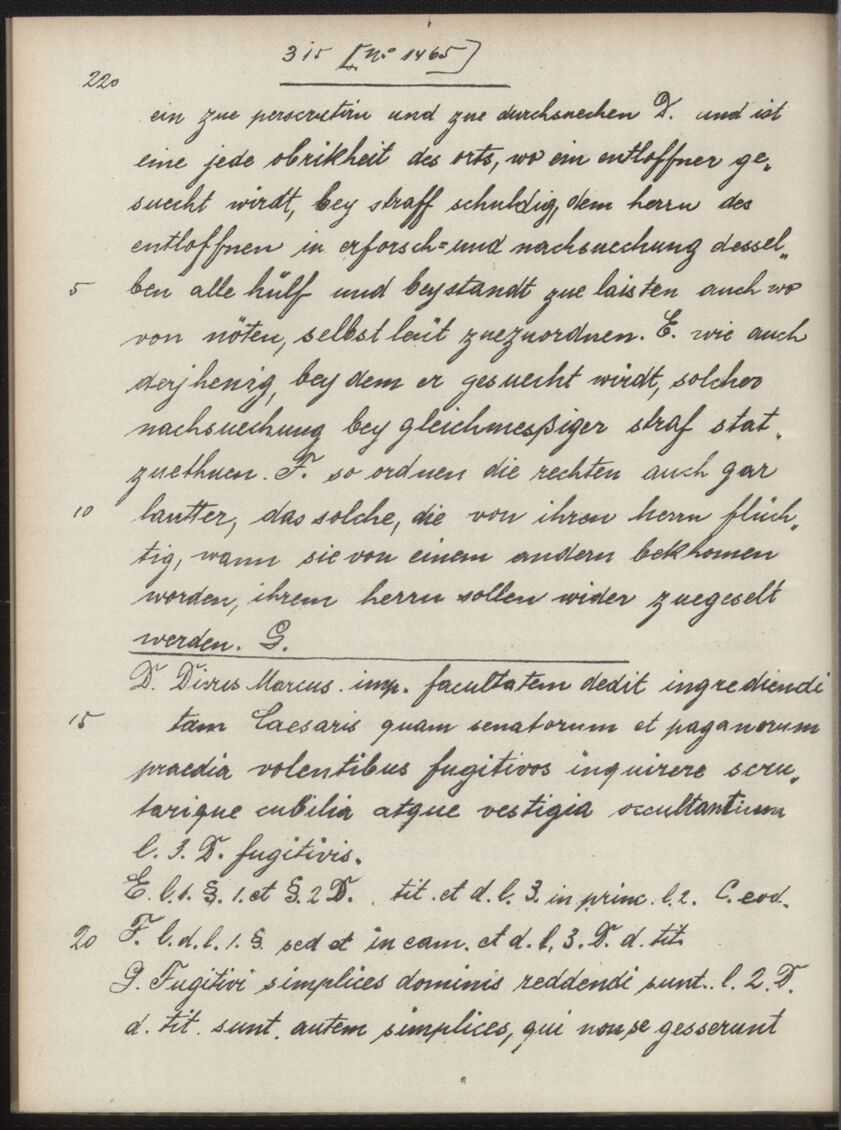 315 [No 1465]
220
ein zue perscrutirn und zue durchsuechen D. und ist
eine jede obrikheit des orts, wo ein entloffner ge„
suecht wirdt, bey straff schuldig, dem herrn des
entloffnen in erforsch= und nachsuechung dessel„
5 ben alle hülf und beystandt zue laisten auch wo
von nöten, selbst leüt zuezuordnen. E. wie auch
derjhenig, bey dem er gesuecht wirdt, solcher
nachsuechung bey gleichmeßiger straf stat„
zuethuen. F. so ordnen die rechten auch gar
10 lautter, das solche, die von ihren herrn flüch„
tig, wann sie von einem andern bekhomen
worden, ihrem herrn sollen wider zuegeselt
werden. G.
D. Divus Marcus imp. facultatem dedit ingrediendi
15 tam Caesaris quam senatorum et paganorum
praedia volentibus fugitivos inquirere scru„
tarique cubilia atque vestigia occultantium
l. 3. D. fugitivis.
E. l. 1. §. 1. et §. 2 D. tit. et d. l. 3. in princ. l. 2. C. eod.
20 F. l. d. l. 1. §. sed et in eam. et d. l. 3. D. d. tit.
G. Fugitivi simplices dominis reddendi sunt. l. 2. D.
d. tit. sunt autem simplices, qui non se gesserunt